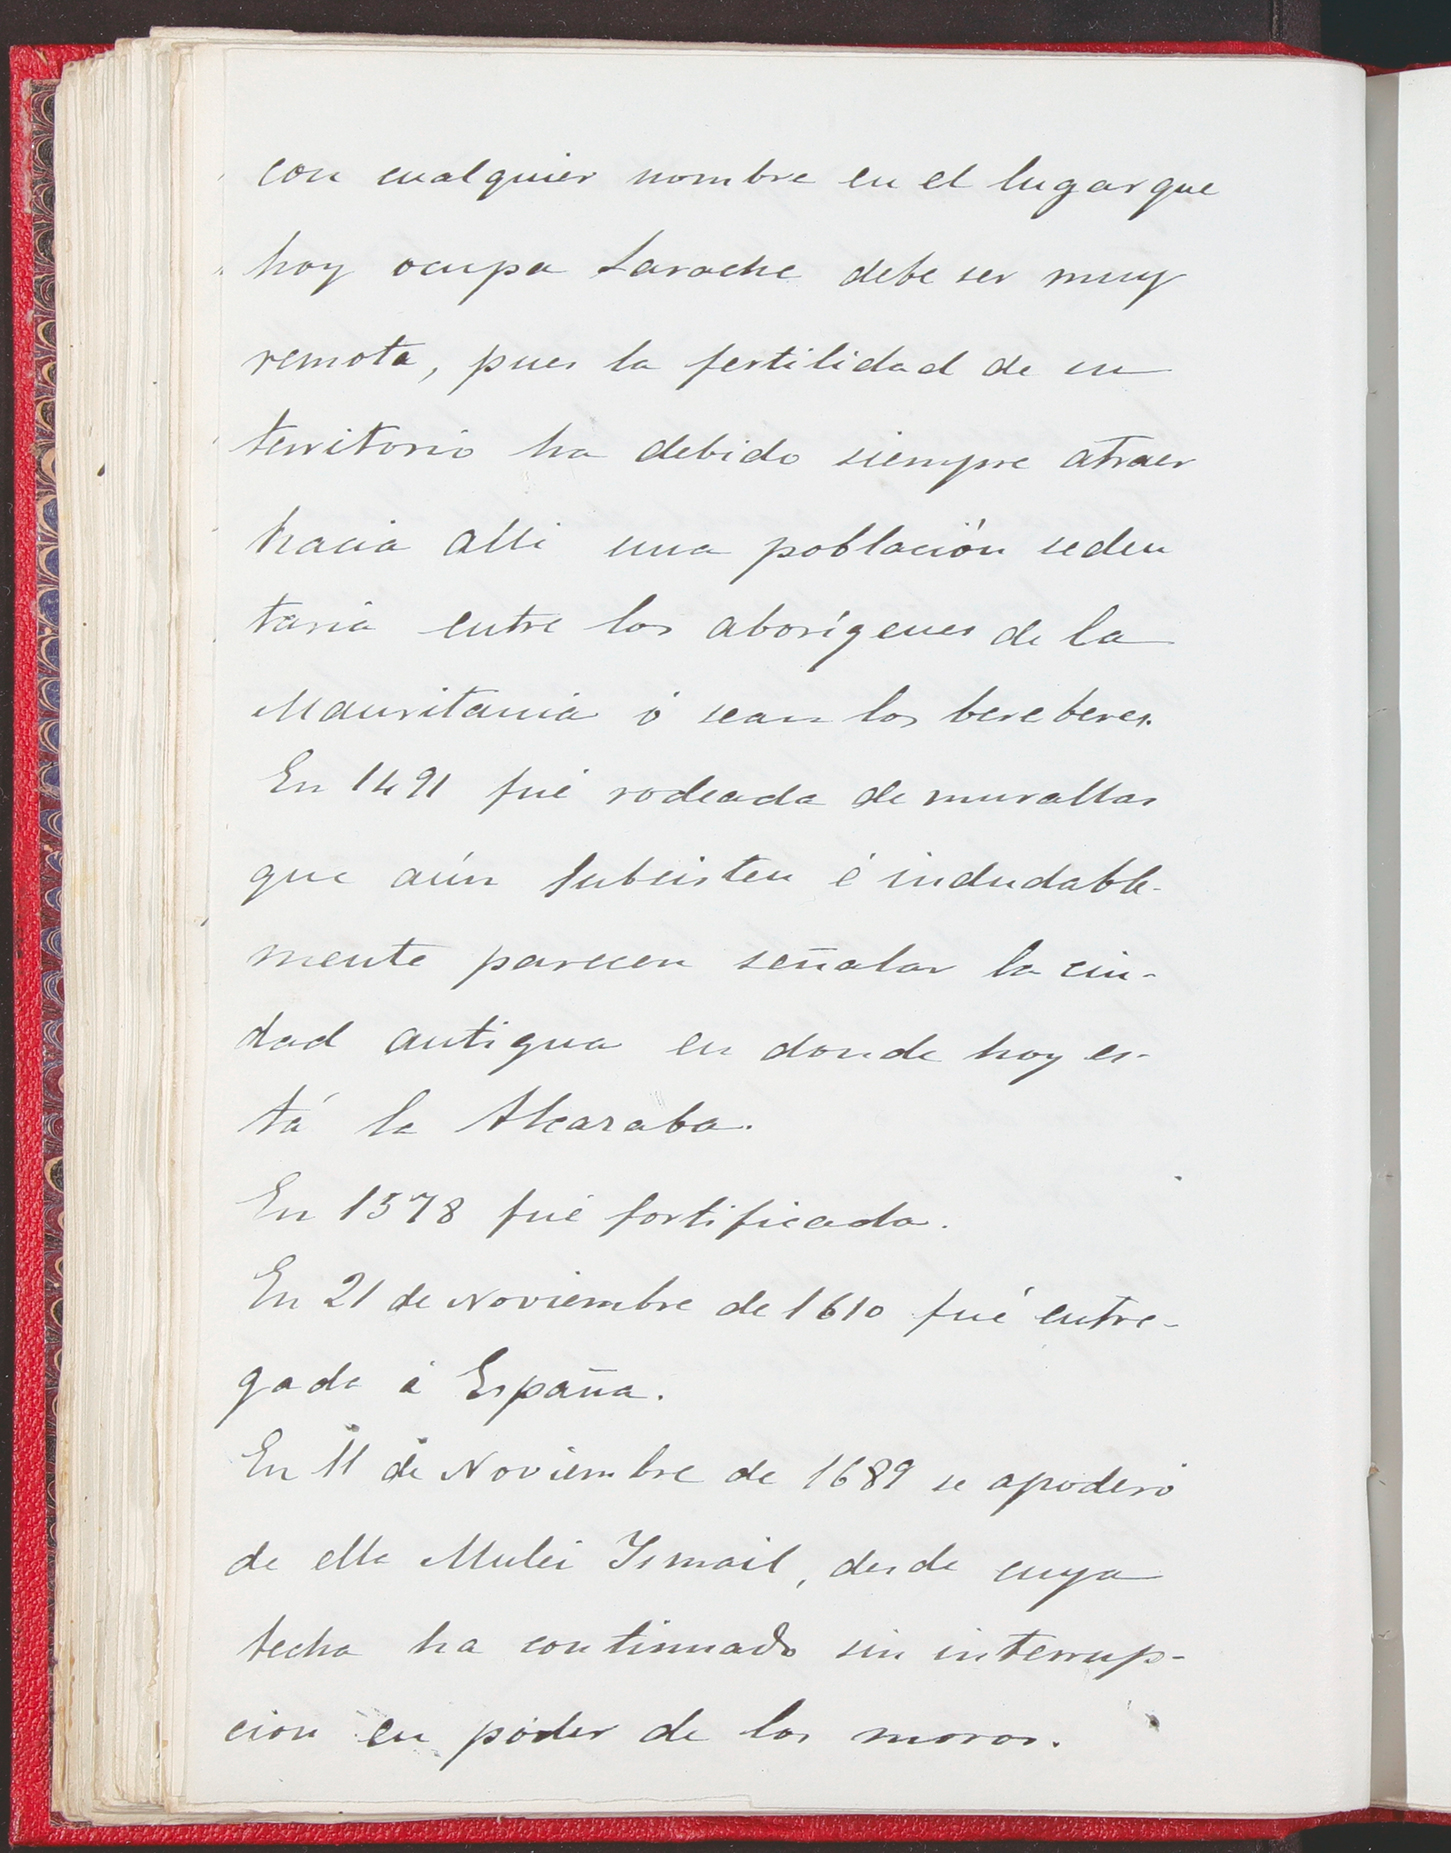 con cualquier nombre en el lugar que
hoy ocupa Larache debe ser muy
remota, pues la fertilidad de su
territorio ha debido siempre atraer
hacia alli una población seden
taria entre los aborígenes de la
Mauritania ó sean los bereberes.
En 1491 fué rodeada de murallas
que aún subsisten é indudable-
mente parecen señalar la ciu-
dad antigua en donde hoy es-
tá la Alcazaba.
En 1578 fué fortificada.
En 21 de Noviembre de 1610 fué entre-
gada á España.
En 11 de Noviembre de 1689 se apoderó
de ella Mulei Ismail, desde cuya
fecha ha continuado sin interrup-
cion en poder de los moros.